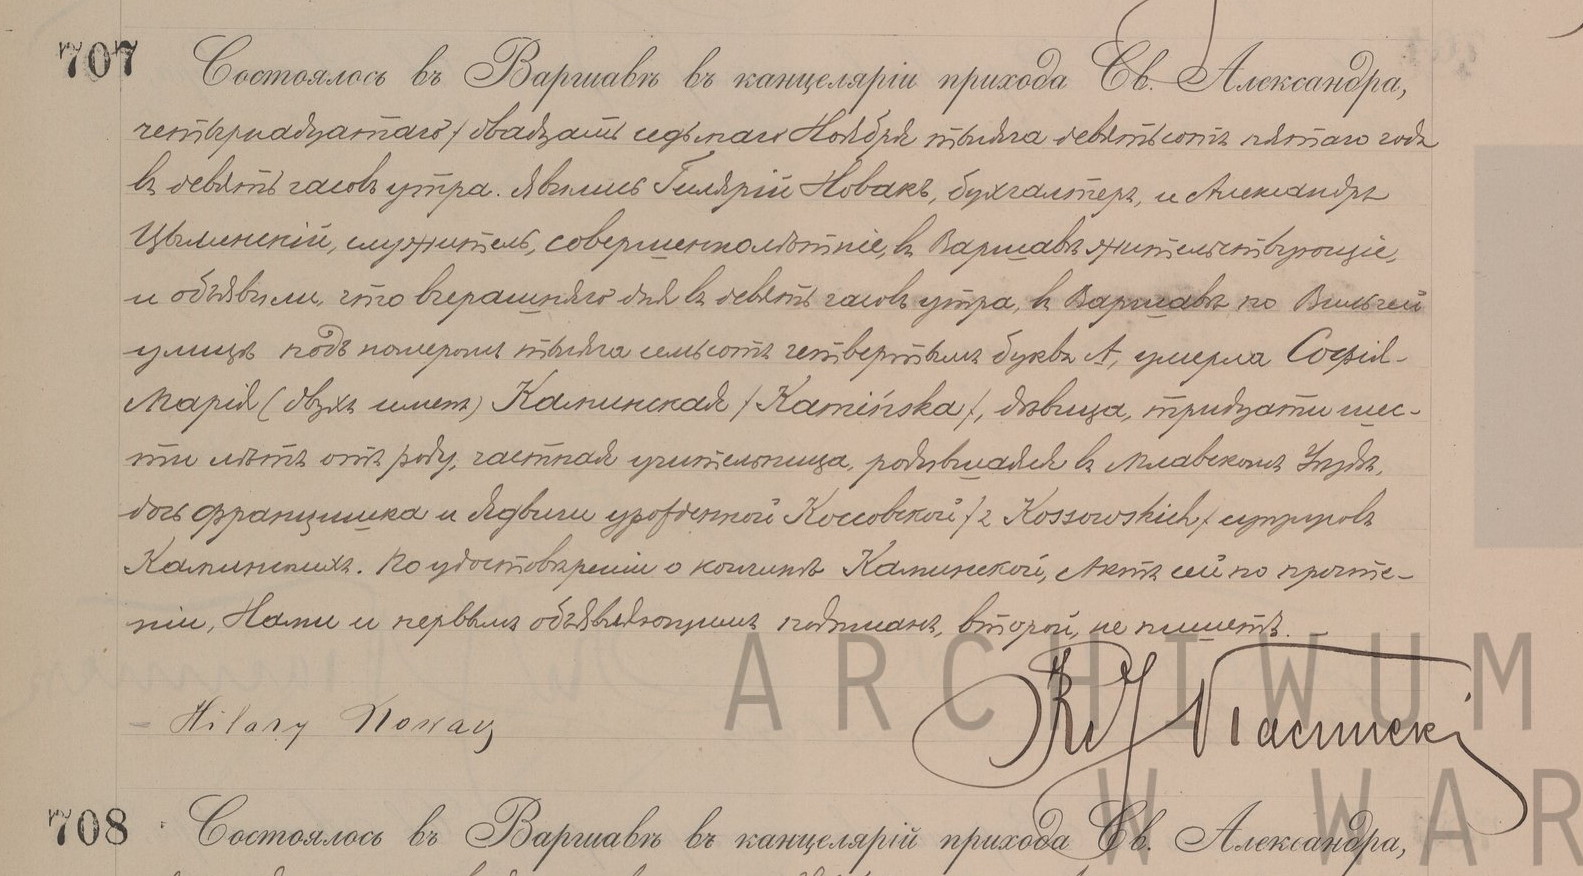 707 Состоялось въ Варшавѣ въ канцеляріи прихода Св. Александра,
четырнадцатаго / двадцать седьмаго Ноября тысяча девятьсотъ пятаго года
въ девять часовъ утра. Явились Гилярій Новакъ, бухгалтеръ, и Александръ
служитель, совершеннолѣтніе, въ Варшавѣ жительствующіе,
и объявили, что вчерашняго дня въ девять часовъ утра, въ Варшавѣ по Вильчей
улицѣ подъ номеромъ тысяча семьсотъ четвертымъ буква А, умерла Софія-
Марія (двухъ именъ) Каминская / Kamińska /, дѣвица, тридцати шес-
ти лѣтъ отъ роду, частная учительница, родившаяся въ Млавскомъ Уѣздѣ,
дочь Францишка и Ядвиги урожденной Коссовской / z Kossowskich / супруговъ
Каминскихъ. По удостовѣреніи о кончинѣ Каминской, Актъ сей по прочте-
ніи, Нами и первымъ объявляющимъ подписанъ, второй, не пишетъ.
ARCHIWUM
Hilary Nowak
W WAR
708 Состоялось въ Варшавѣ въ канцелярій прихода Св. Александра,